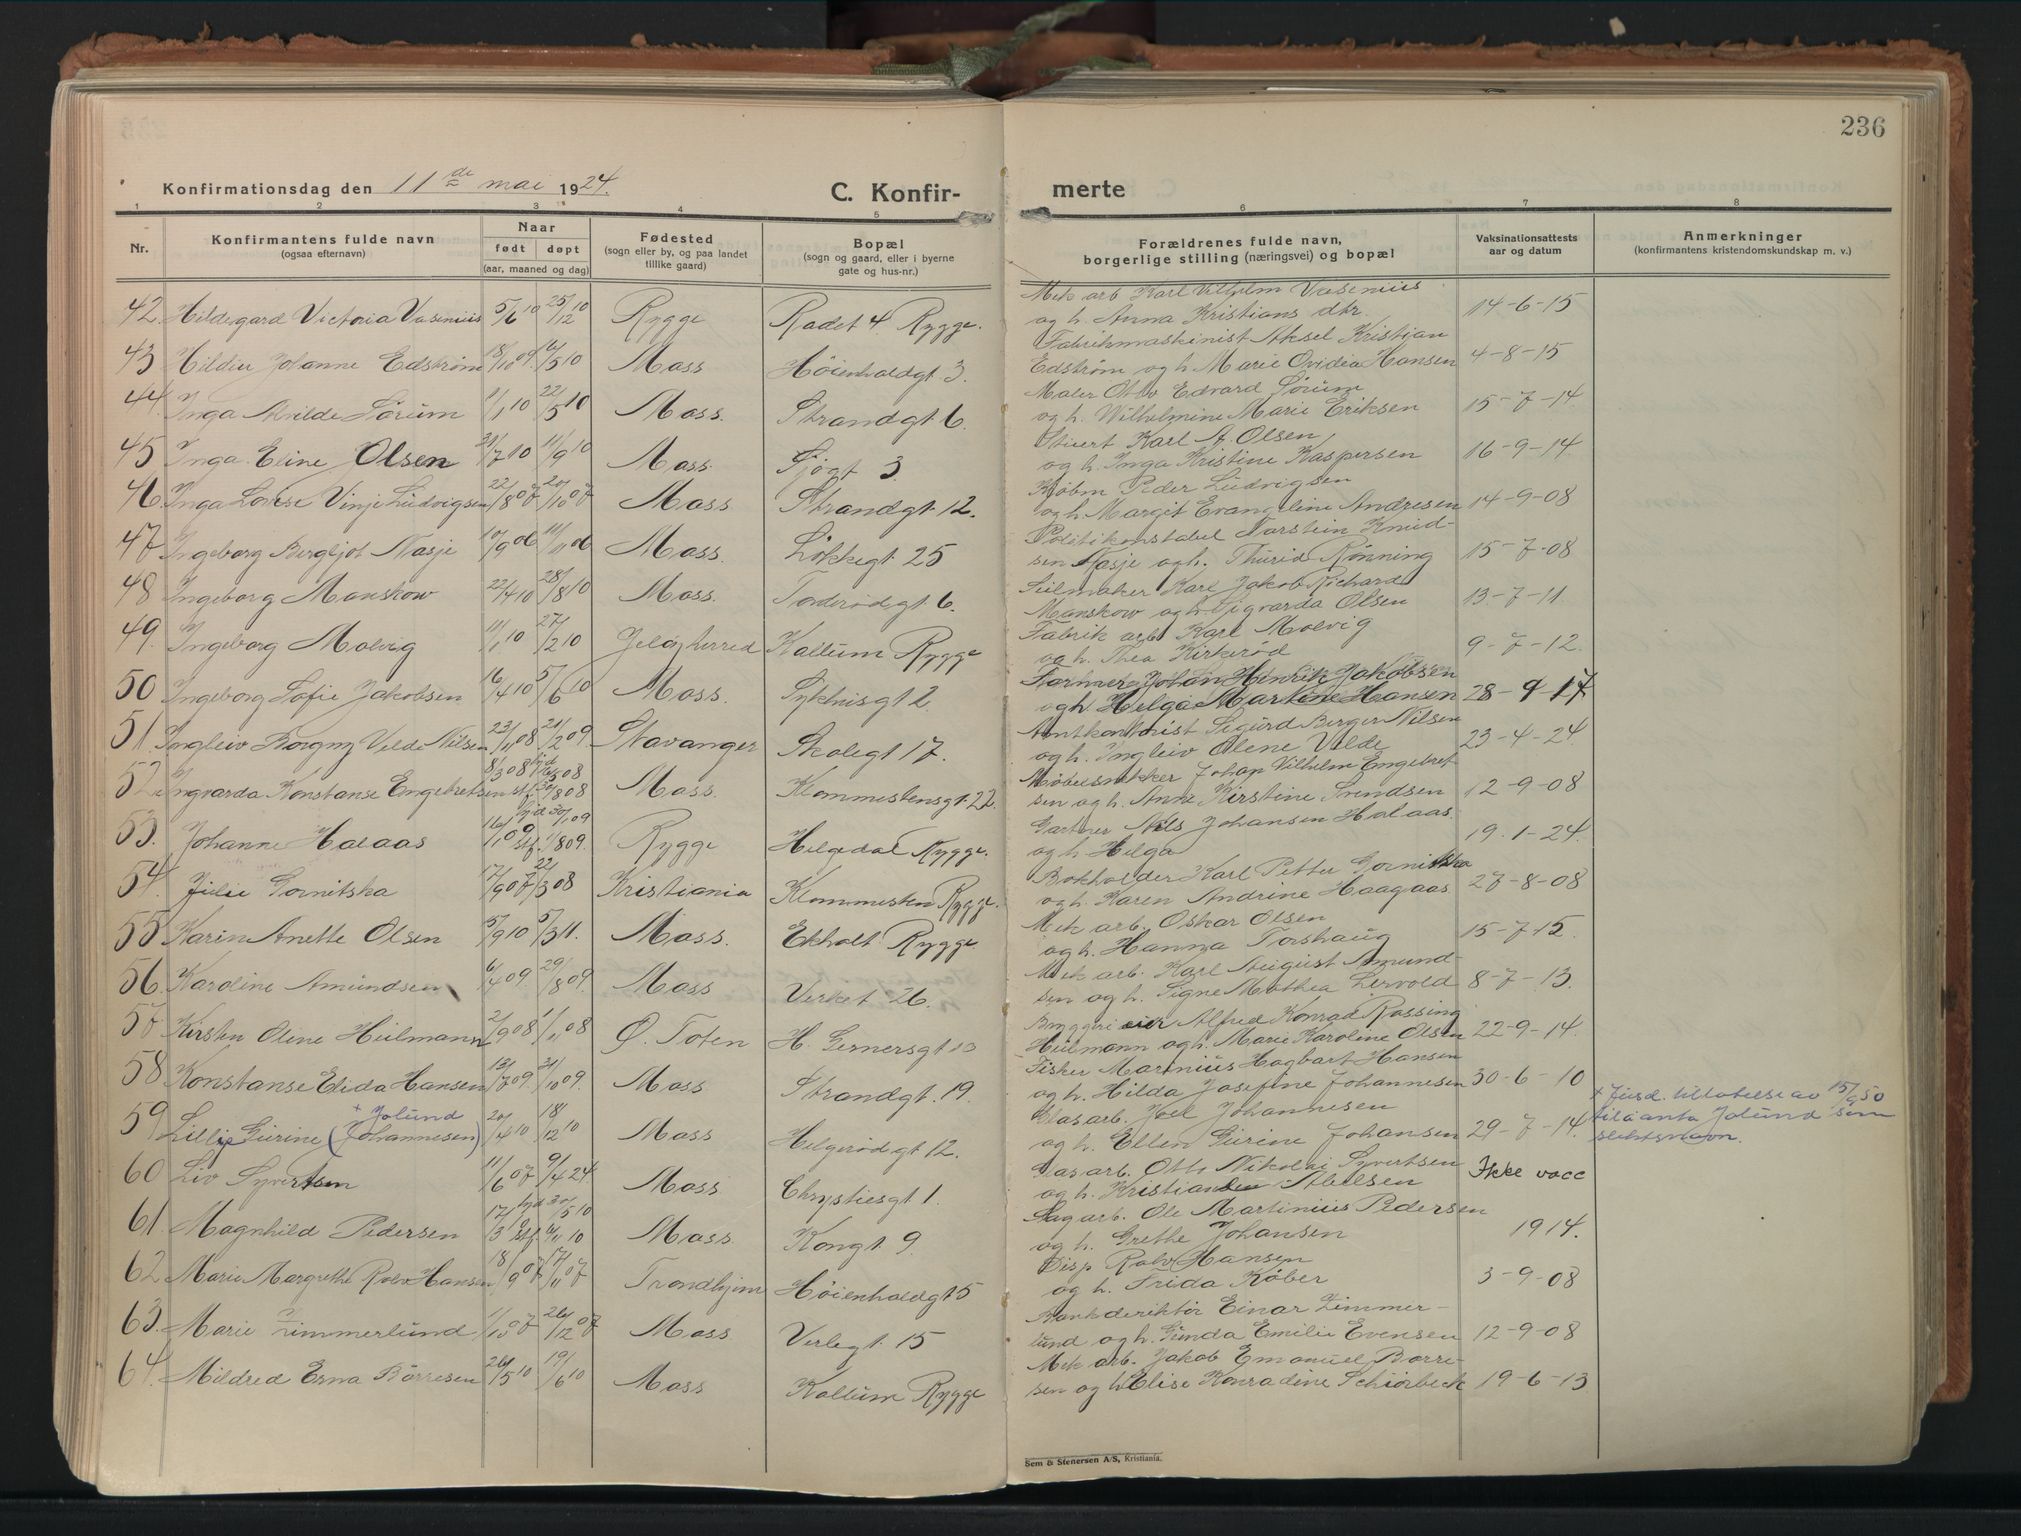 236
Konfirmationsdag den 11de mai 1924.
C. Konfirmerte
1 2 3 4 5 6 7 8
Nr.
Konfirmantens fulde navn
(ogsaa efternavn)
Naar
født døpt
(aar, maaned og dag)
Fødested
(sogn eller by, og paa landet
tillike gaard)
Bopæl
(sogn og gaard, eller i byerne
gate og hus-nr.)
Forældrenes fulde navn,
borgerlige stilling (næringsvei) og bopæl
Vaksinationsattests
aar og datum
Anmerkninger
(konfirmantens kristendomskundskap m. v.)
42. Hildegard Victoria Vasenius 5/6 10 25/12 10 Rygge Radet 4. Rygge.
Mek arb Karl Vilhelm Vasenius
og h. Anna Kristians dtr. 14-6-15
43 Hildur Johanne Edstrøm 18/10 09. 16/5 10 Moss Høienholdgt 3.
Fabrikmaskinist Aksel Kristian
Edstrøm og h. Marie Ovidia Hansen 4-8-15
44. Inga Alvilde Sørum 1/1 10 22/5 10 Moss. Strandgt 6.
Maler Otto Edvard Sørum
og h. Wilhelmine Marie Eriksen 15-7-14
45 Inga Eline Olsen 31/7 10 11/9 10 Moss Sjøgt 3
Stuert Karl A. Olsen
og h. Inga Kristine Kaspersen 16-9-14
46 Inga Lovise Vinje Ludvigsen 22/8 07 20/10 07 Moss Strandgt 12.
Kjøbm Peder Ludvigsen
og h. Margit Evangeline Andresen 14-9-08
47 Ingeborg Bergljot Nasje 10/9 06 11/11 06 Moss. Løkkegt 25
Politikonstabel Torstein Knud-
sen Nasje og h. Thurid Rønning 15-7-08
48 Ingeborg Manskow 22/4 10 28/8 10 Moss. Tonderødgt 6.
Seilmaker Karl Jakob Richard
Manskow og h. Sigvarda Olsen 13-7-11.
49. Ingeborg Molvig 11/1 10 27/2 10 Jeløy herred Kallum Rygge
Fabrik arb. Karl Molvig
og h. Thea Kirkerød 9-7-12.
50 Ingeborg Sofie Jakobsen 16/4 10 5/6 10 Moss. Sykhusgt 2
Former Johan Henrik Jakobsen
og h Helga Martine Hansen 28-9-17
51. Ingleiv Borgny Velde Nilsen 23/11 08 21/2 09 Stavanger Skolegt 17.
Amtkontorist Sigurd Berger Nilsen
og h. Ingleiv Olene Velde 23-4-24
52. Ingvarda Konstanse Engebretsen 8/3 08 hjd stf. 30/8 08 Moss. Klommestensgt. 22
Møbelsnekker Johan Vilhelm Engebret-
sen og h. Anne Kirstine Svendsen 12-9-08
53. Johanne Halaas 16/1 09 hjd 30/1 09 stf. 1/8 09. Rygge Helgedal Rygge.
Gartner Nils Johansen Halaas.
og h. Helga 19.1-24.
54. Julie Gornitska 17/9 07 22/3 08 Kristiania Klommesten Rygge.
Bokholder Karl Petter Gornitska
og h. Karen Andrine Haagaas 27-8-08
55 Karin Anette Olsen 5/9 10 5/3 11. Moss. Ekholt Rygge
Mek arb. Oskar Olsen
og h. Hanna Torshaug 15-7-15.
56. Karoline Amundsen 6/4 09. 29/8 09. Moss Verket 26.
Mek arb. Karl August Amund-
sen og h. Signe Mathea Lervold 8-7-13.
57 Kirsten Oline Heilmann 2/9 08 1/11 08 Ø. Toten H. Gernersgt 13
Bryggeri eier Alfred Konrad Rossing
Heilmann og h. Marie Karoline Olsen 22-9-14.
58 Konstanse Elida Hansen 13/7 09. 31/10 09. Moss Strandgt. 19.
Fisker Marinius Hagbart Hansen
og h. Hilda Josefine Johannesen 30-6-10
59 Lilly Gurine (Johannesen) + Jolund 20/4 10 18/12 10 Moss Helgerødgt 12.
Glasarb. Joel Johannesen
og h. Ellen Gurine Johansen 29-7-14.
+ Jusd. tillatelse av 15/9 50
til å anta Jolund som
slektsnavn.
60 Liv Syvertsen 11/6 07 9/4 24. Moss Chrystiesgt 1.
Glasarb. Otto Nikolai Syvertsen
og h. Kristiane Abelsen Ikke vacc
61. Magnhild Pedersen 17/3 10 hjd 30/5 10 stf. 6/11 10 Moss Kongt 9.
Sagarb. Ole Martinius Pedersen
og h. Grethe Johansen 1914.
62 Marie Margrethe Rolv Hansen 18/9 07 17/11 07 Trondhjem Høienholdgt 5
Disp Rolv Hansen
og h. Frida Køber 3-9-08
63. Marie Zimmerlund 1/10 07 26/12 07 Moss Verlegt 15
Bankdirektør Einar Zimmer-
lund og h. Gunda Emilie Evensen 12-9-08
64. Mildred Erna Børresen 26/5 10 19/6 10 Moss Kallum Rygge
Mek arb. Jakob Emanuel Børre-
sen og h Elise Konradine Schiørbeck 19-6-13
Sem & Stenersen A/S, Kristiania.